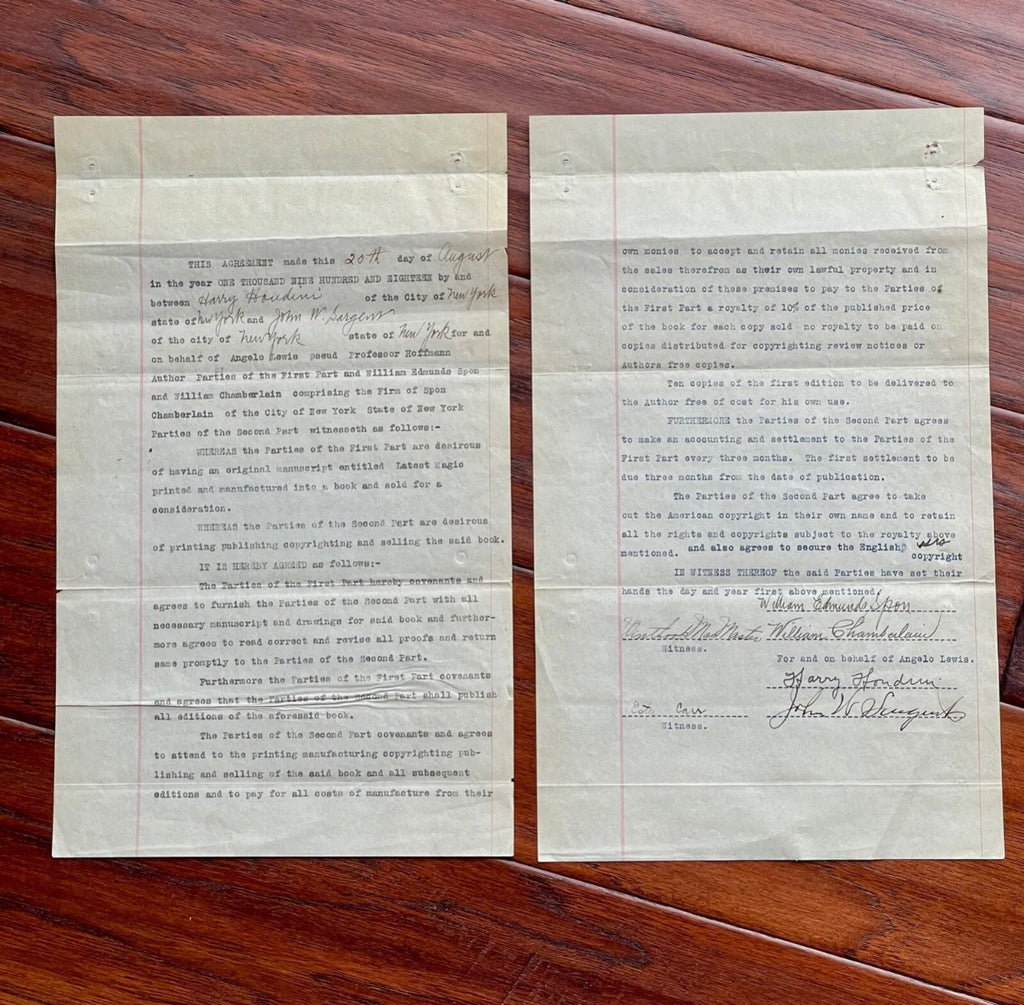 THIS AGREEMENT made this 20th day of August
in the year ONE THOUSAND NINE HUNDRED AND EIGHTEEN by and
between Harry Houdini of the City of New York
state of New York and John W. Sargent
of the city of New York state of New York for and
on behalf of Angelo Lewis pseud Professor Hoffmann
Author Parties of the First Part and William Edmunds Spon
and William Chamberlain comprising the Firm of Spon
Chamberlain of the City of New York State of New York
Parties of the Second Part witnesseth as follows:-
WHEREAS the Parties of the First Part are desirous
of having an original manuscript entitled Latest Magic
printed and manufactured into a book and sold for a
consideration.
WHEREAS the Parties of the Second Part are desirous
of printing publishing copyrighting and selling the said book.
IT IS HEREBY AGREED as follows:-
The Parties of the First Part hereby covenants and
agrees to furnish the Parties of the Second Part with all
necessary manuscript and drawings for said book and further-
more agrees to read correct and revise all proofs and return
same promptly to the Parties of the Second Part.
Furthermore the Parties of the First Part covenants
and agrees that the Parties of the Second Part shall publish
all editions of the aforesaid book.
The Parties of the Second Part covenants and agrees
to attend to the printing manufacturing copyrighting pub-
lishing and selling of the said book and all subsequent
editions and to pay for all costs of manufacture from their
own monies to accept and retain all monies received from
the sales therefrom as their own lawful property and in
consideration of these premises to pay to the Parties of
the First Part a royalty of 10% of the published price
of the book for each copy sold no royalty to be paid on
copies distributed for copyrighting review notices or
Authors free copies.
Ten copies of the first edition to be delivered to
the Author free of cost for his own use.
FURTHERMORE the Parties of the Second Part agrees
to make an accounting and settlement to the Parties of the
First Part every three months. The first settlement to be
due three months from the date of publication.
The Parties of the Second Part agree to take
out the American copyright in their own name and to retain
all the rights and copyrights subject to the royalty above
mentioned. and also agrees to secure the English
copyright
IN WITNESS THEREOF the said Parties have set their
hands the day and year first above mentioned
William Edmunds Spon
William Chamberlain
Witness.
For and on behalf of Angelo Lewis.
Harry Houdini
Carr John W Sargent
Witness.